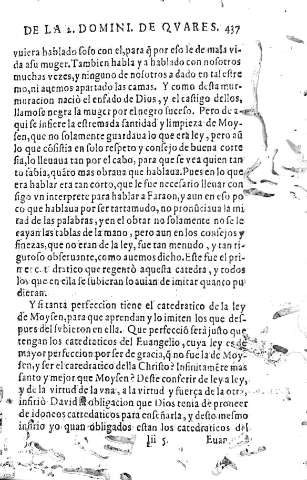 DE LA 2. DOMINI. DE QVARES. 437
vuiera hablado solo con el, para q̃ por eso le de mala vi-
da asu muger. Tambien habla y a hablado con nosotros
muchas vezes, y ninguno de nosotros a dado en tal estre
mo, ni auemos apartado las camas. Y como desta mur-
muracion nacio el enfado de Dios, y el castigo dellos,
llamose negra la muger por el negro suceso. Pero de a-
qui se infiere la estremada santidad y limpieza de Moy-
sen, que no solamente guardaua lo que era ley, pero aũ
lo que cõsistia en solo respeto y consejo de buena corte
sia, lo lleuaua tan por el cabo, para que se vea quien tan
to sabia, quãto mas obrana que hablaua. Pues en lo que
era hablar era tan corto, que le fue necesario lleuar con
sigo vn interprete para hablar a Faraon, y aun en eso po
co que hablaua por ser tartamudo, no pronũciaua la mi
tad de las palabras, y en el obrar no solamente no se le
cayan las tablas de la mano, pero aun en los consejos y
finezas, que no eran de la ley, fue tan menudo, y tan ri-
guroso obseruante, como auemos dicho. Este fue el pri-
dratico que regentò aquesta catredra, y todos
los que en ella se subieran lo auian de imitar quanto pu
dieran.
Y si tanta perfeccion tiene el catedratico de la ley
de Moysen, para que aprendan y lo imiten los que des-
pues del subieron en ella. Que perfecciõ serà justo que
tengan los catedraticos del Euangelio, cuya ley es de
mayor perfeccion por ser de gracia, q̃ no fue la de Moy-
sen, y ser el catredatico della Christo? Infinitamẽte mas
santo y mejor que Moysen? Deste conferir de ley a ley,
y de la virtud de la vna, a la virtud y fuerça de la otra,
infiriò David la obligacion que Dios tenia de proueer
de idoneos catredaticos para enseñarla, y desto mesmo
infirio yo quan obligados estan los catedraticos del
Iii 5. Euan-